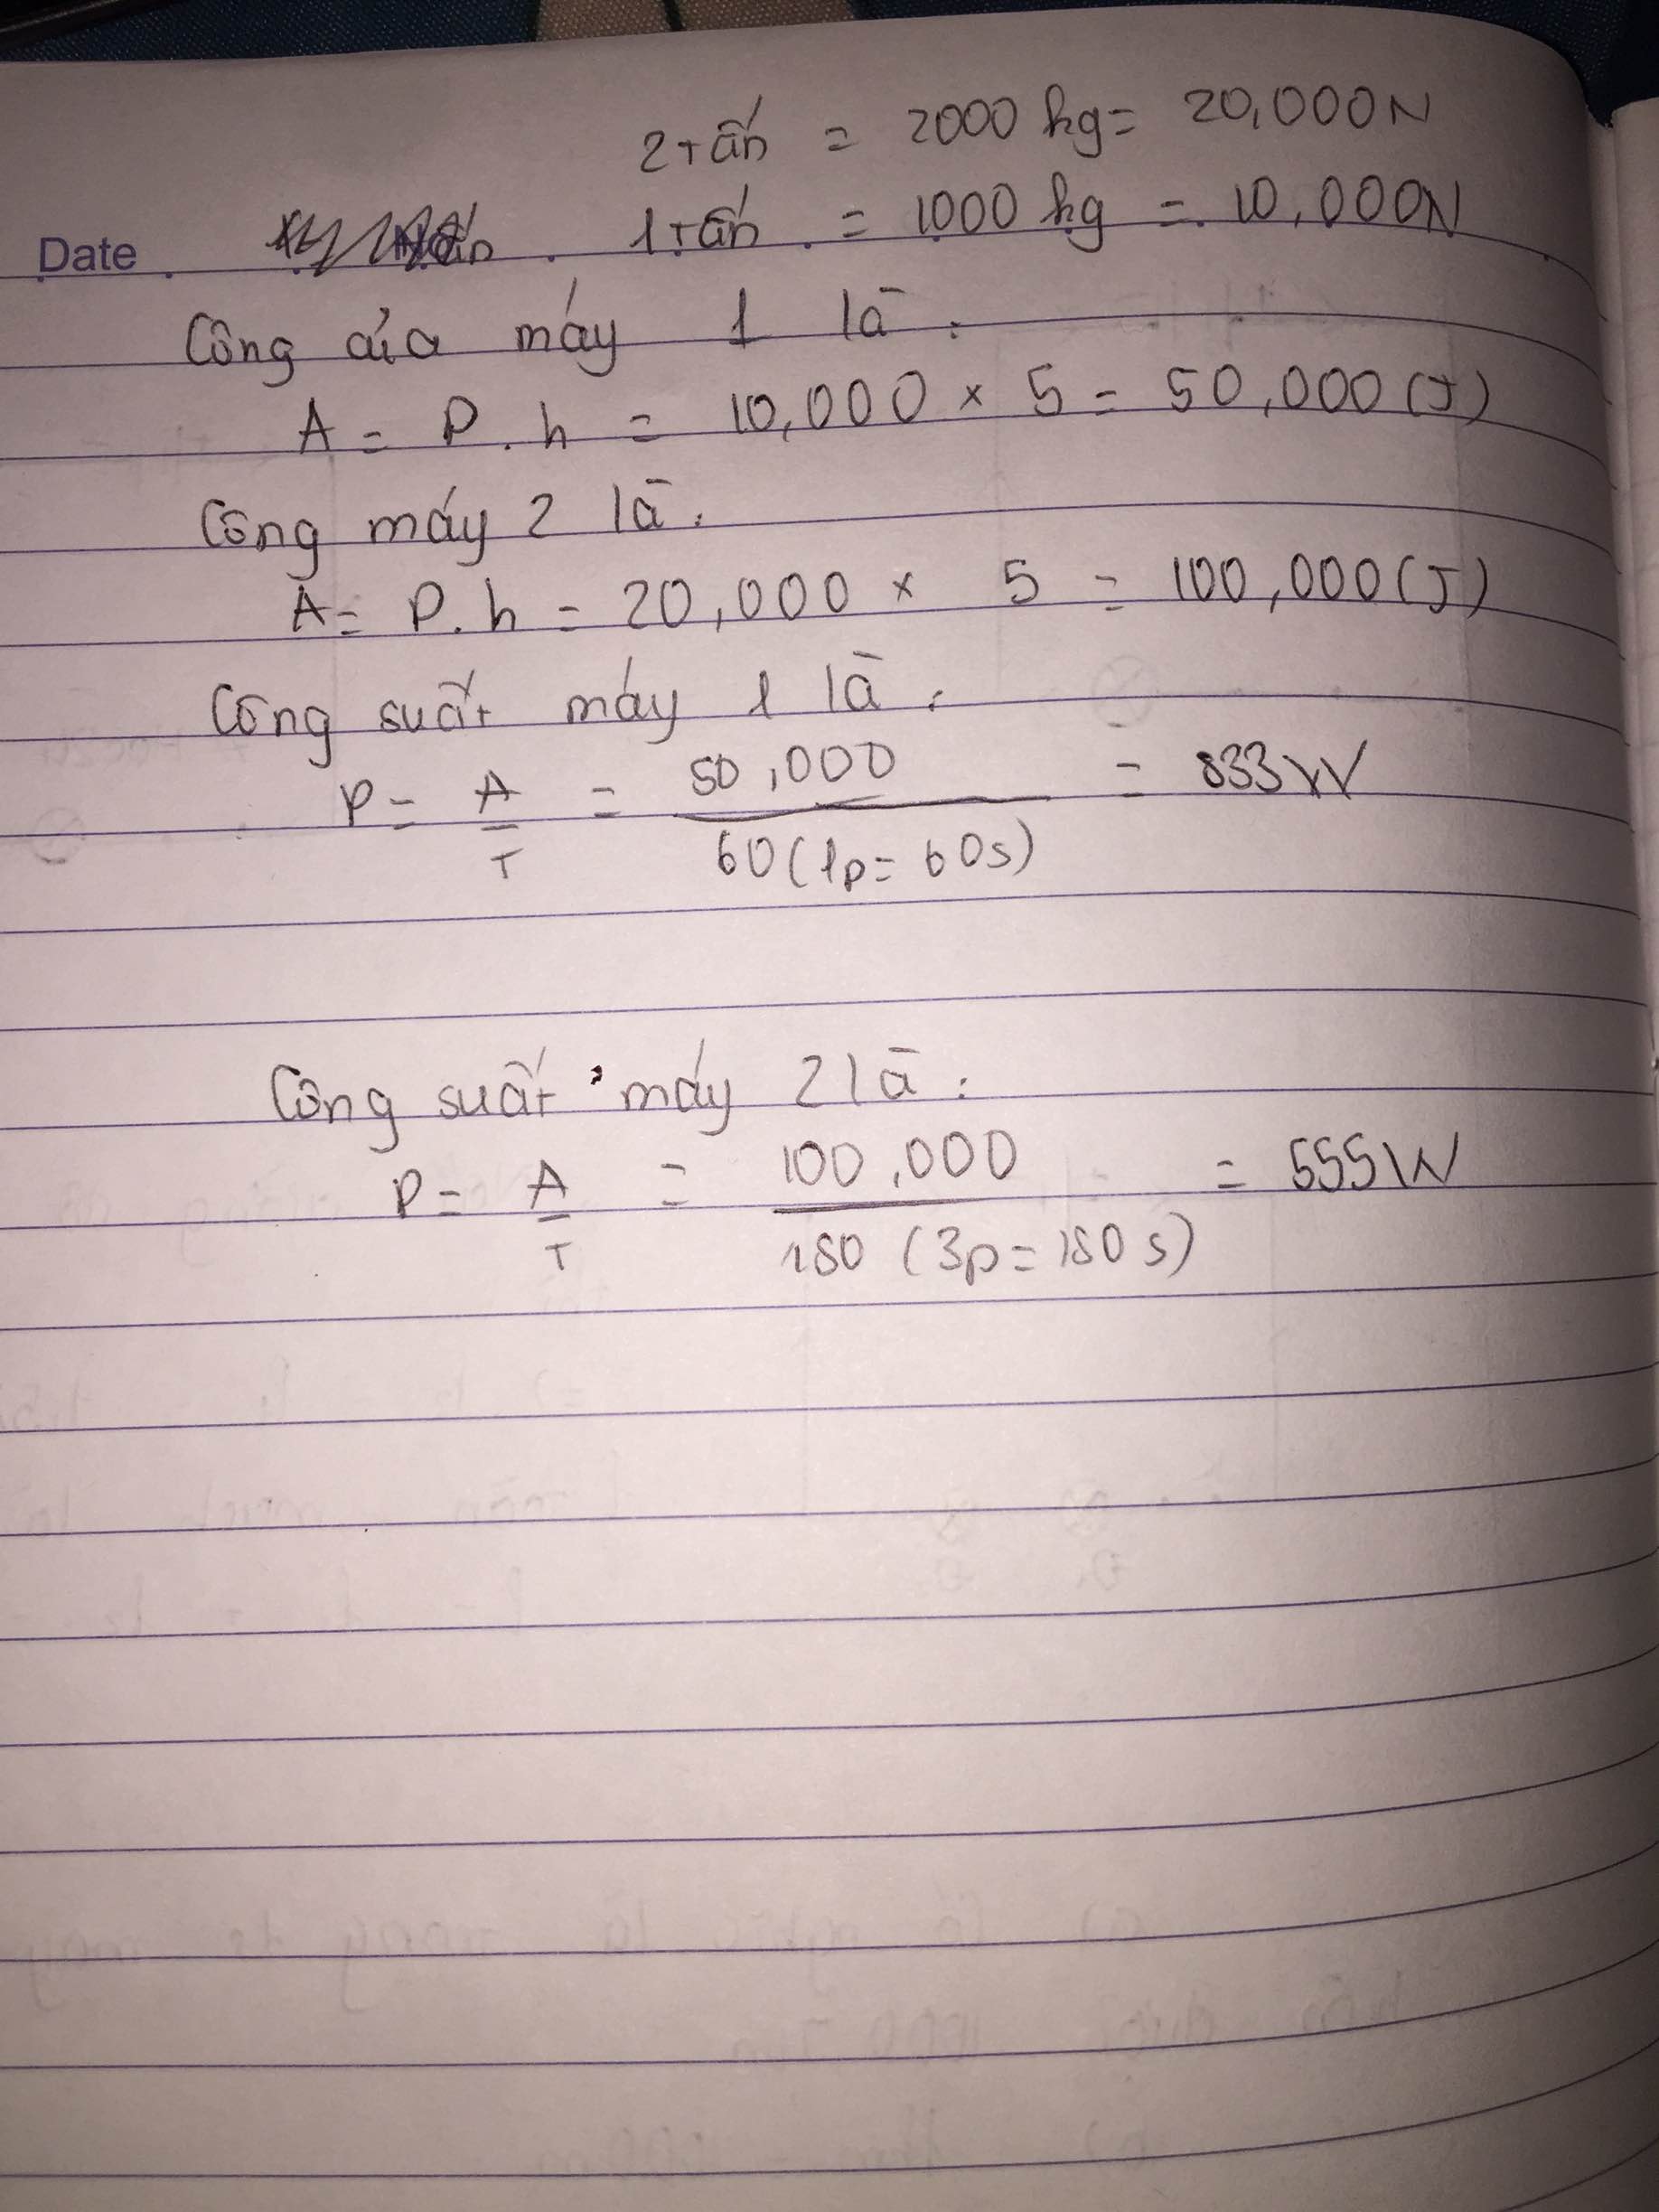 2 tấn = 2000 kg = 20,000N
1 tấn = 1000 kg = 10,000N
Date
Công của máy 1 là:
A = P . h = 10,000 × 5 = 50,000 (J)
Công máy 2 là:
A = P. h = 20,000 × 5 = 100,000 (J)
Công suất máy 1 là:
P = A = 50,000 = 833W
T 60 (1p = 60s)
Công suất máy 2 là:
P = A = 100,000 = 555W
T 180 (3p = 180s)